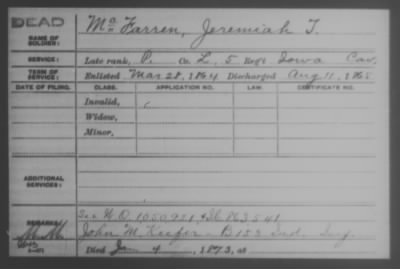 DEAD
NAME OF SOLDIER: Mc Farren, Jeremiah T.
SERVICE: Late rank, P. Co. L, 5 Reg't Iowa Cav.
TERM OF SERVICE: Enlisted Mar 28, 1864 Discharged Aug 11, 1865
DATE OF FILING. CLASS. APPLICATION NO. CERTIFICATE NO.
Invalid,
Widow,
Minor,
ADDITIONAL SERVICES:
REMARKS: See W.O. 1050,921
John M. Keefer - B 153 Ind. Inf.
Died 4, 1873, at